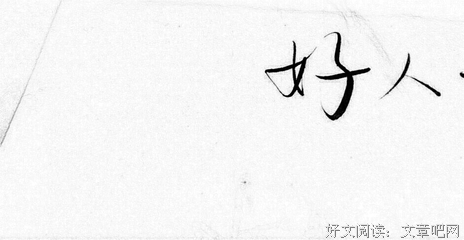 好人
好文阅读：文章吧网